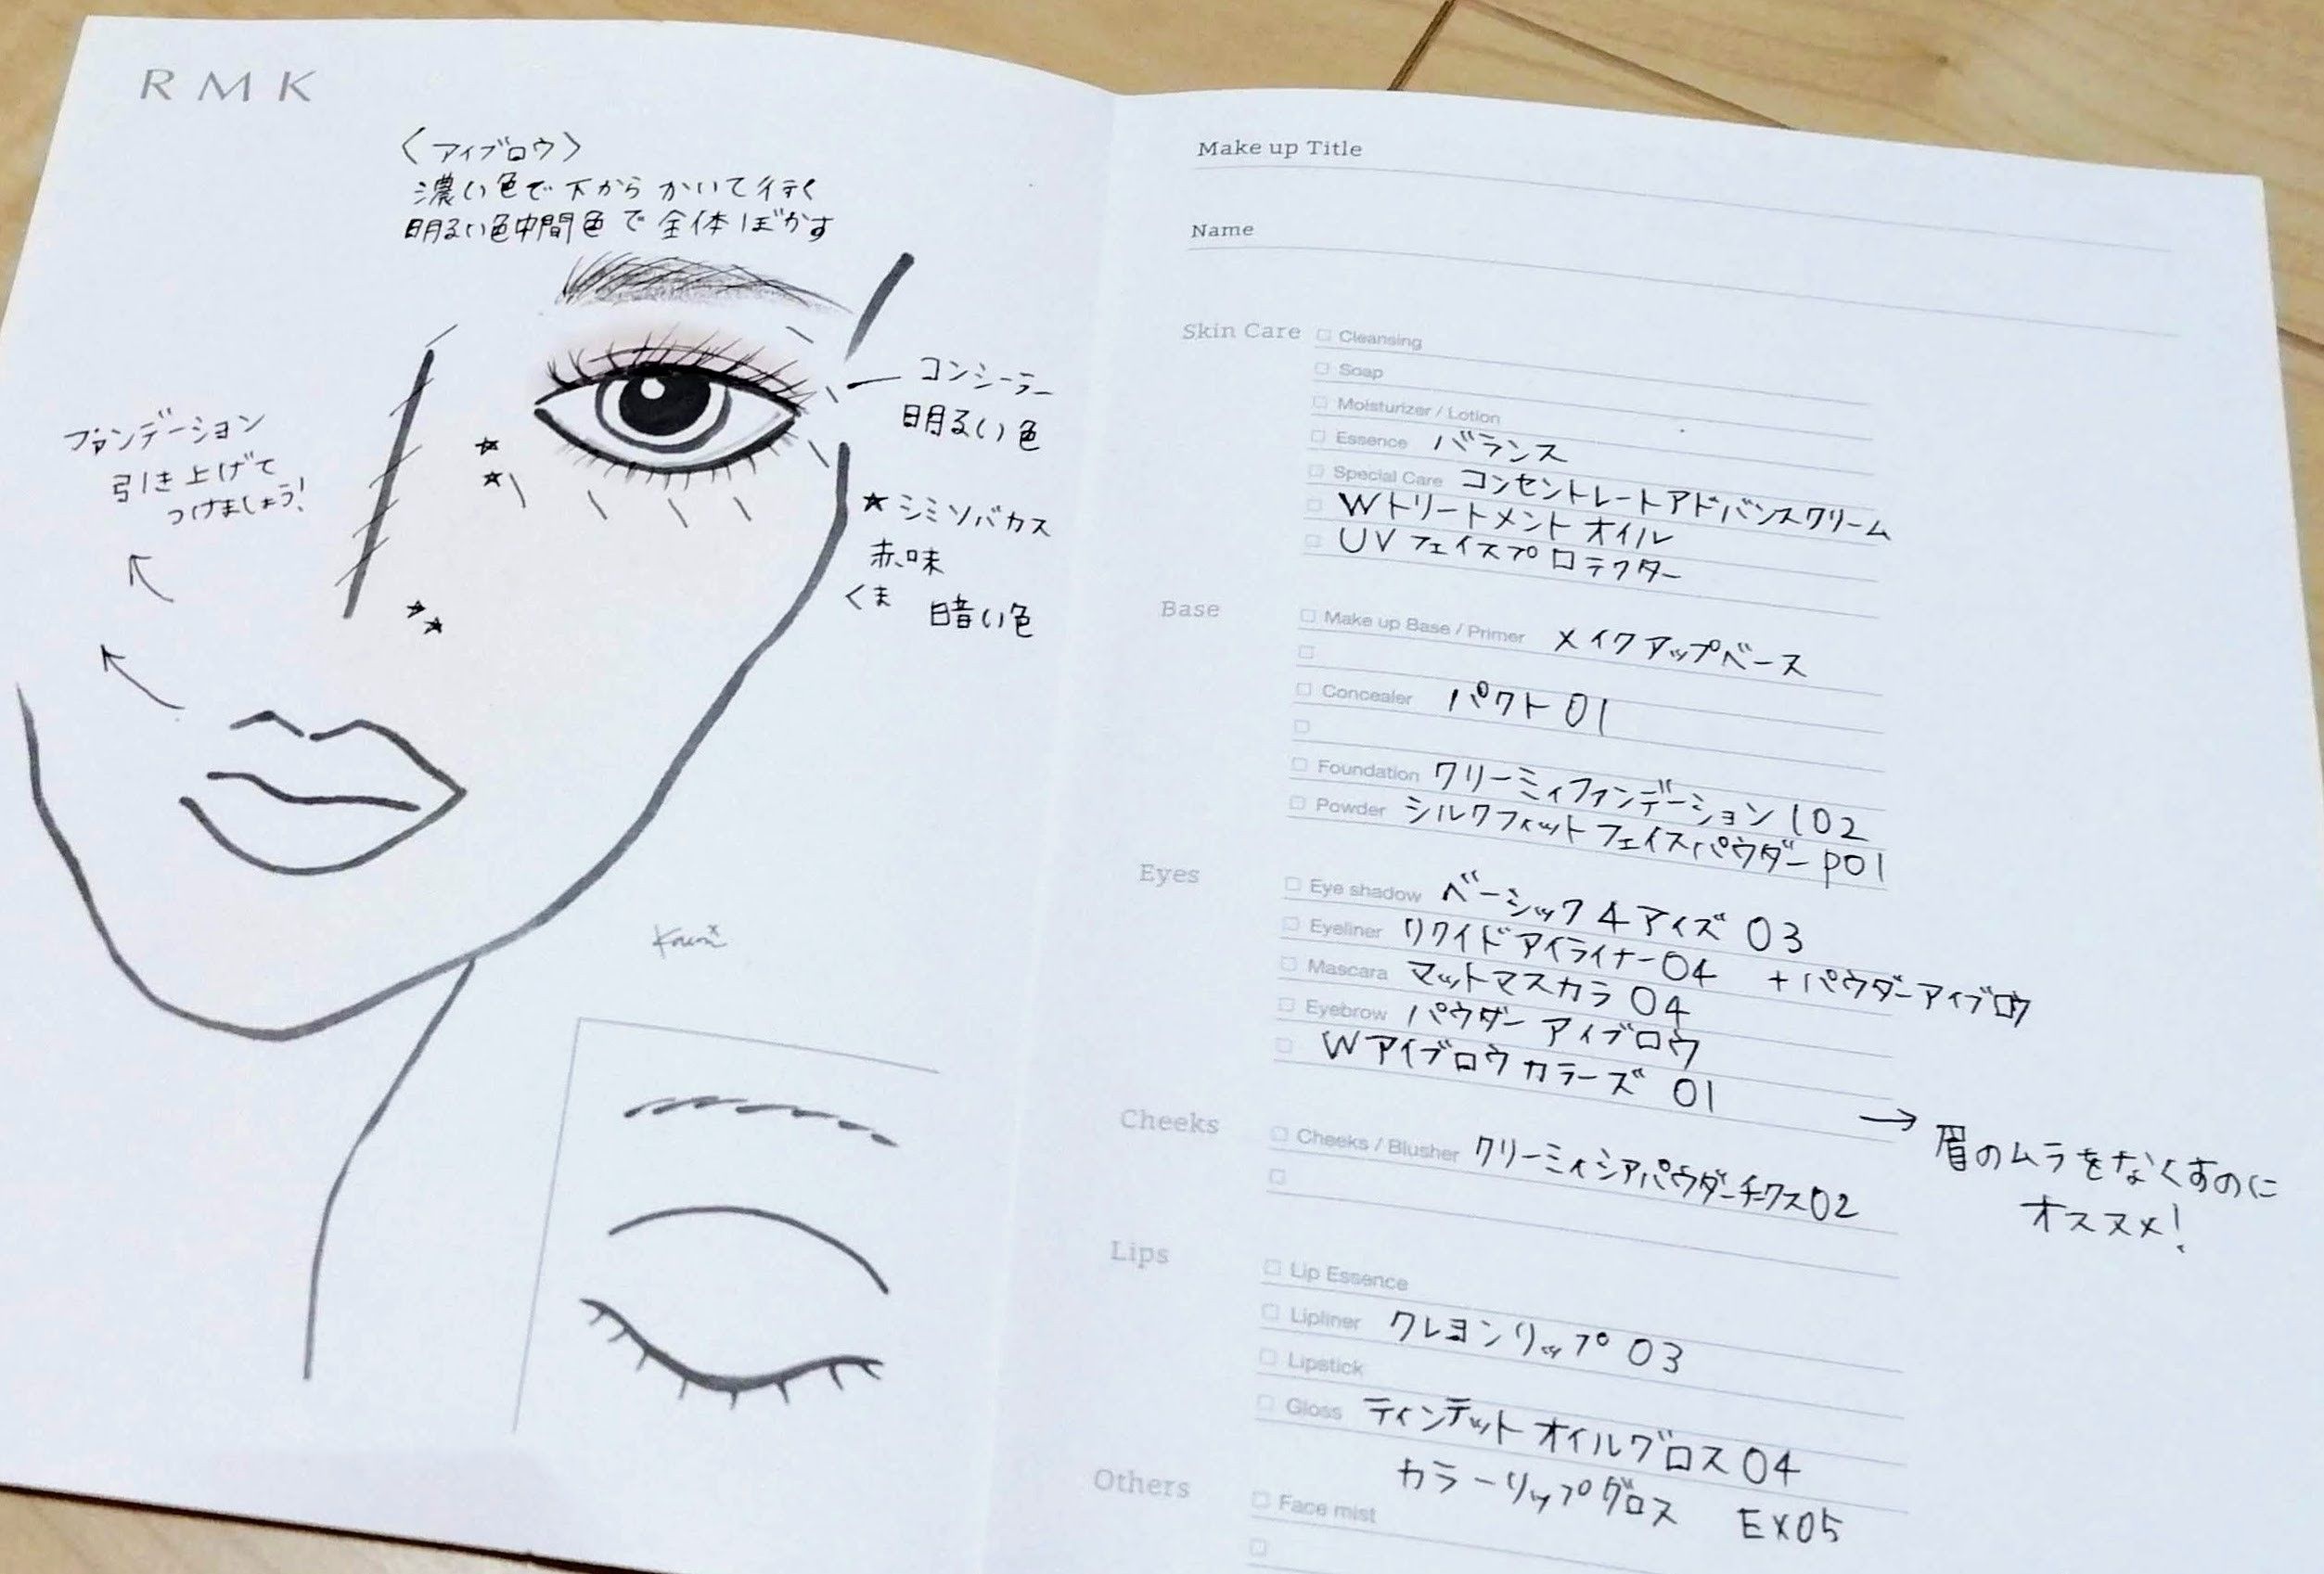 RMK
〈アイブロウ〉
濃い色で下からかいて行く
明るい色中間色で全体ぼかす
コンシーラー
明るい色
ファンデーション
引き上げて
つけましょう!
★シミソバカス
赤味
くま 暗い色
Make up Title
Name
Skin Care
Cleansing
Soap
Moisturizer / Lotion
Essence バランス
Special Care コンセントレートアドバンスクリーム
Wトリートメントオイル
UVフェイスプロテクター
Base
Make up Base / Primer メイクアップベース
Concealer パクト01
Foundation クリーミィファンデーション102
Powder シルクフィットフェイスパウダーP01
Eyes
Eye shadow ベーシック4アイズ 03
Eyeliner リクイドアイライナー04 +パウダーアイブロウ
Mascara マットマスカラ 04
Eyebrow パウダーアイブロウ
Wアイブロウカラーズ 01
→眉のムラをなくすのに
オススメ!
Cheeks
Cheeks / Blusher クリーミィシアパウダーチークス02
Lips
Lip Essence
Lipliner クレヨンリップ 03
Lipstick
Gloss ティンテットオイルグロス04
カラーリップグロス EX05
Others
Face mist